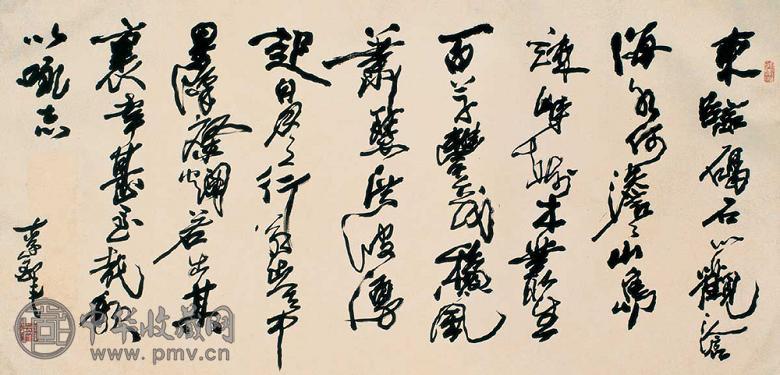 東臨碣石以觀滄
海水何澹〻山島
竦峙樹木叢生
百草豐茂秋風
蕭瑟洪波湧
起日月之行若出其中
星漢燦爛若出其
裏幸甚至哉歌
以詠志
李鐸書
中华收藏网
www.pmv.cn